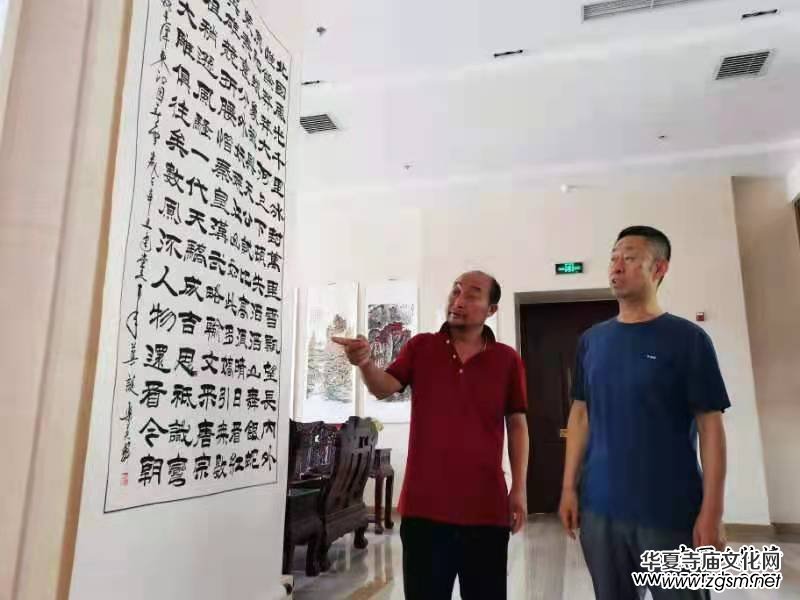 北國風光千里冰封萬里雪飄望長內外
惟餘莽莽大河上下頓失滔滔山舞銀蛇
原馳蠟象欲與天公試比高須晴日看紅
裝素裹分外妖嬈江山如此多嬌引無數
英雄競折腰惜秦皇漢武略輸文采唐宗
宋祖稍遜風騷一代天驕成吉思祇識彎
弓射大雕俱往矣數風流人物還看今朝
华夏寺庙文化网
www.zgsm.net